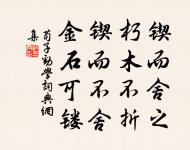 锲而舍之
朽木不折
锲而不舍
金石可镂
荀子勸學詞典網
集